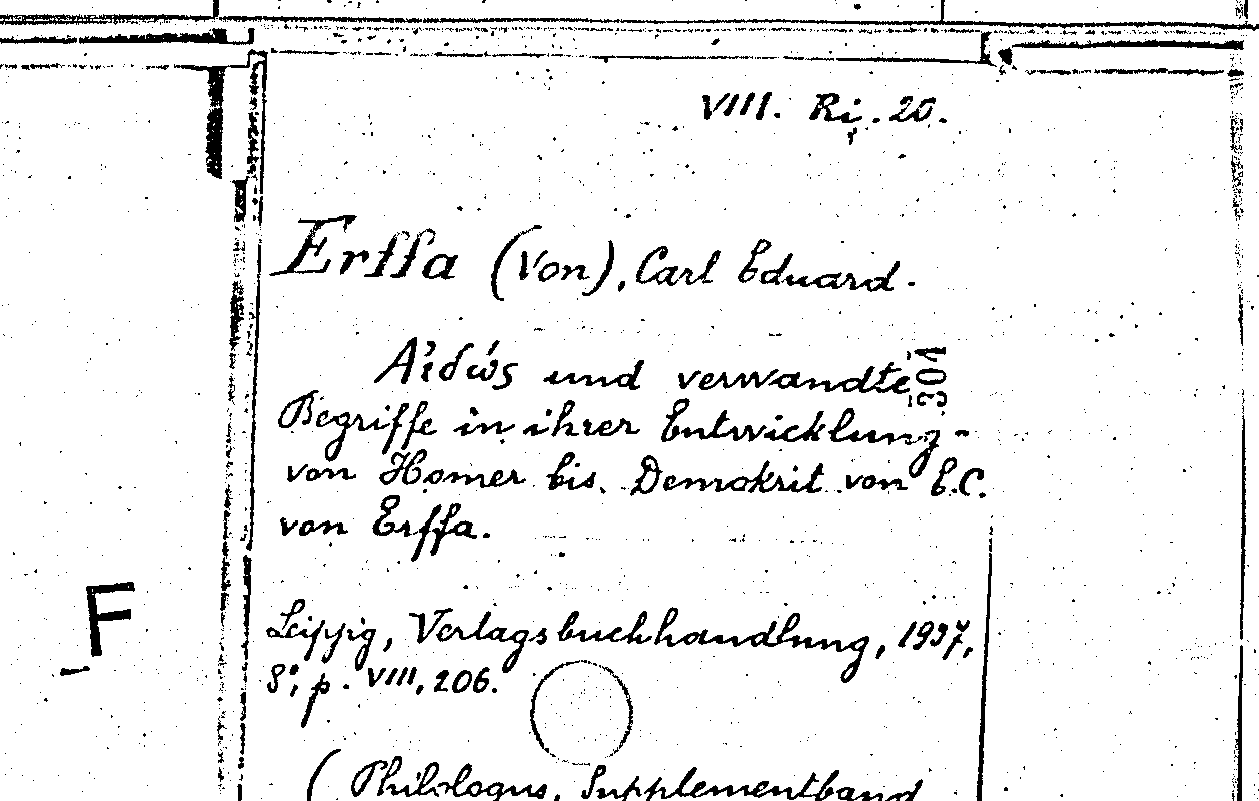 VIII. Ri. 20.
Erffa (Von), Carl Eduard.
Αἰδώς und verwandte
301
Begriffe in ihrer Entwicklung-
von Homer bis Demokrit von E.C.
von Erffa.
F
Leipzig, Verlagsbuchhandlung, 1937,
8°, p. VIII, 206.
(Philologus, Supplementband